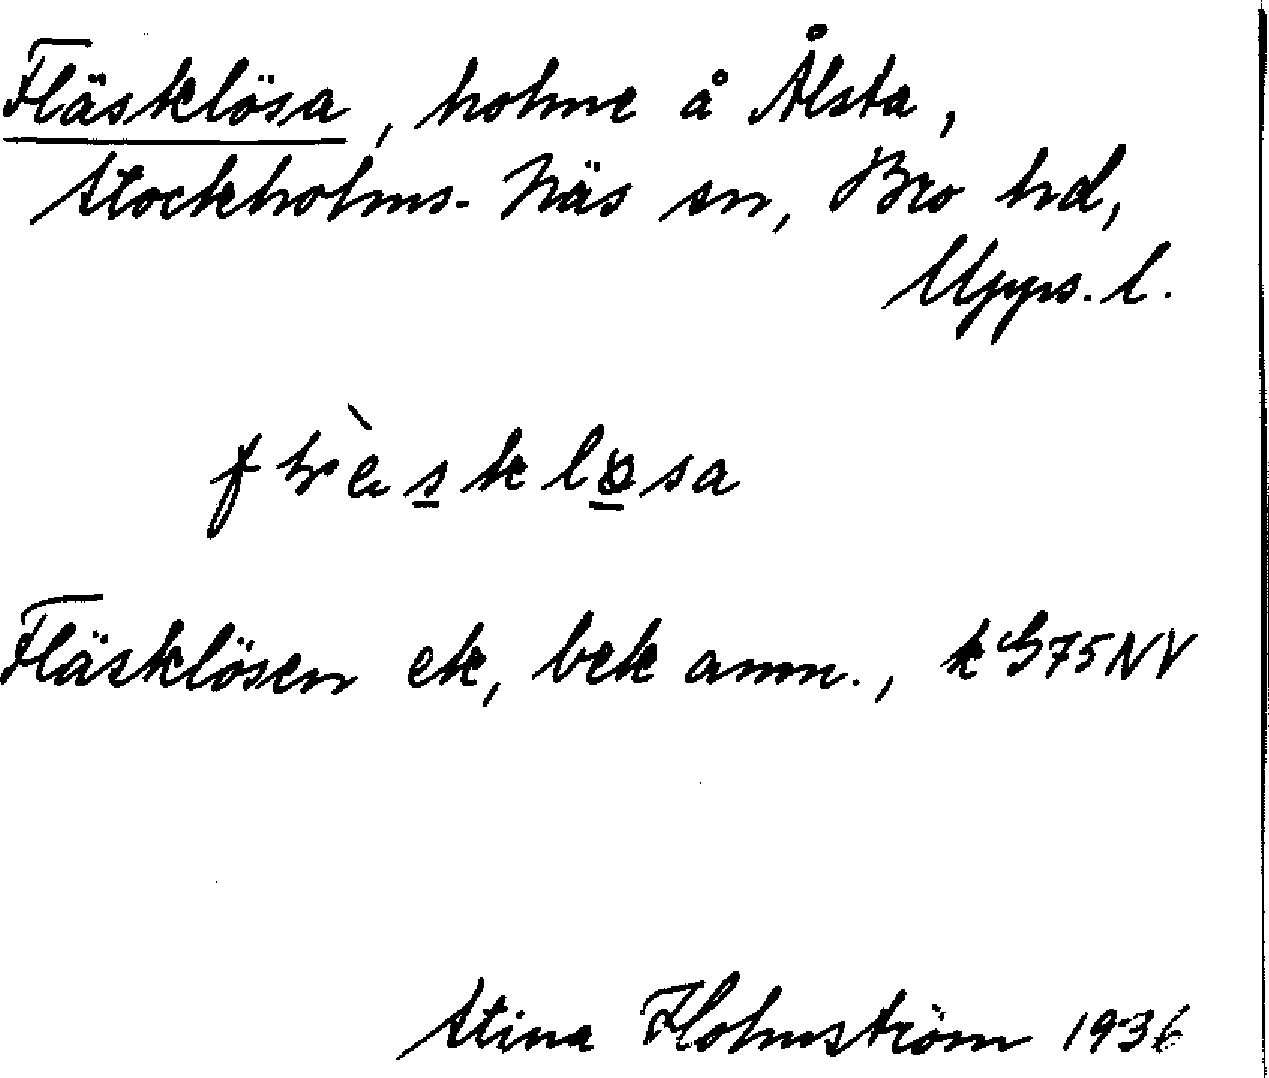 Fläsklösa, holme å Ålsta,
Stockholms-Näs sn, Bro hd,
Upps. l.
Fläsklösen ek, bek anm., k G75NV
Stina Holmström 1936